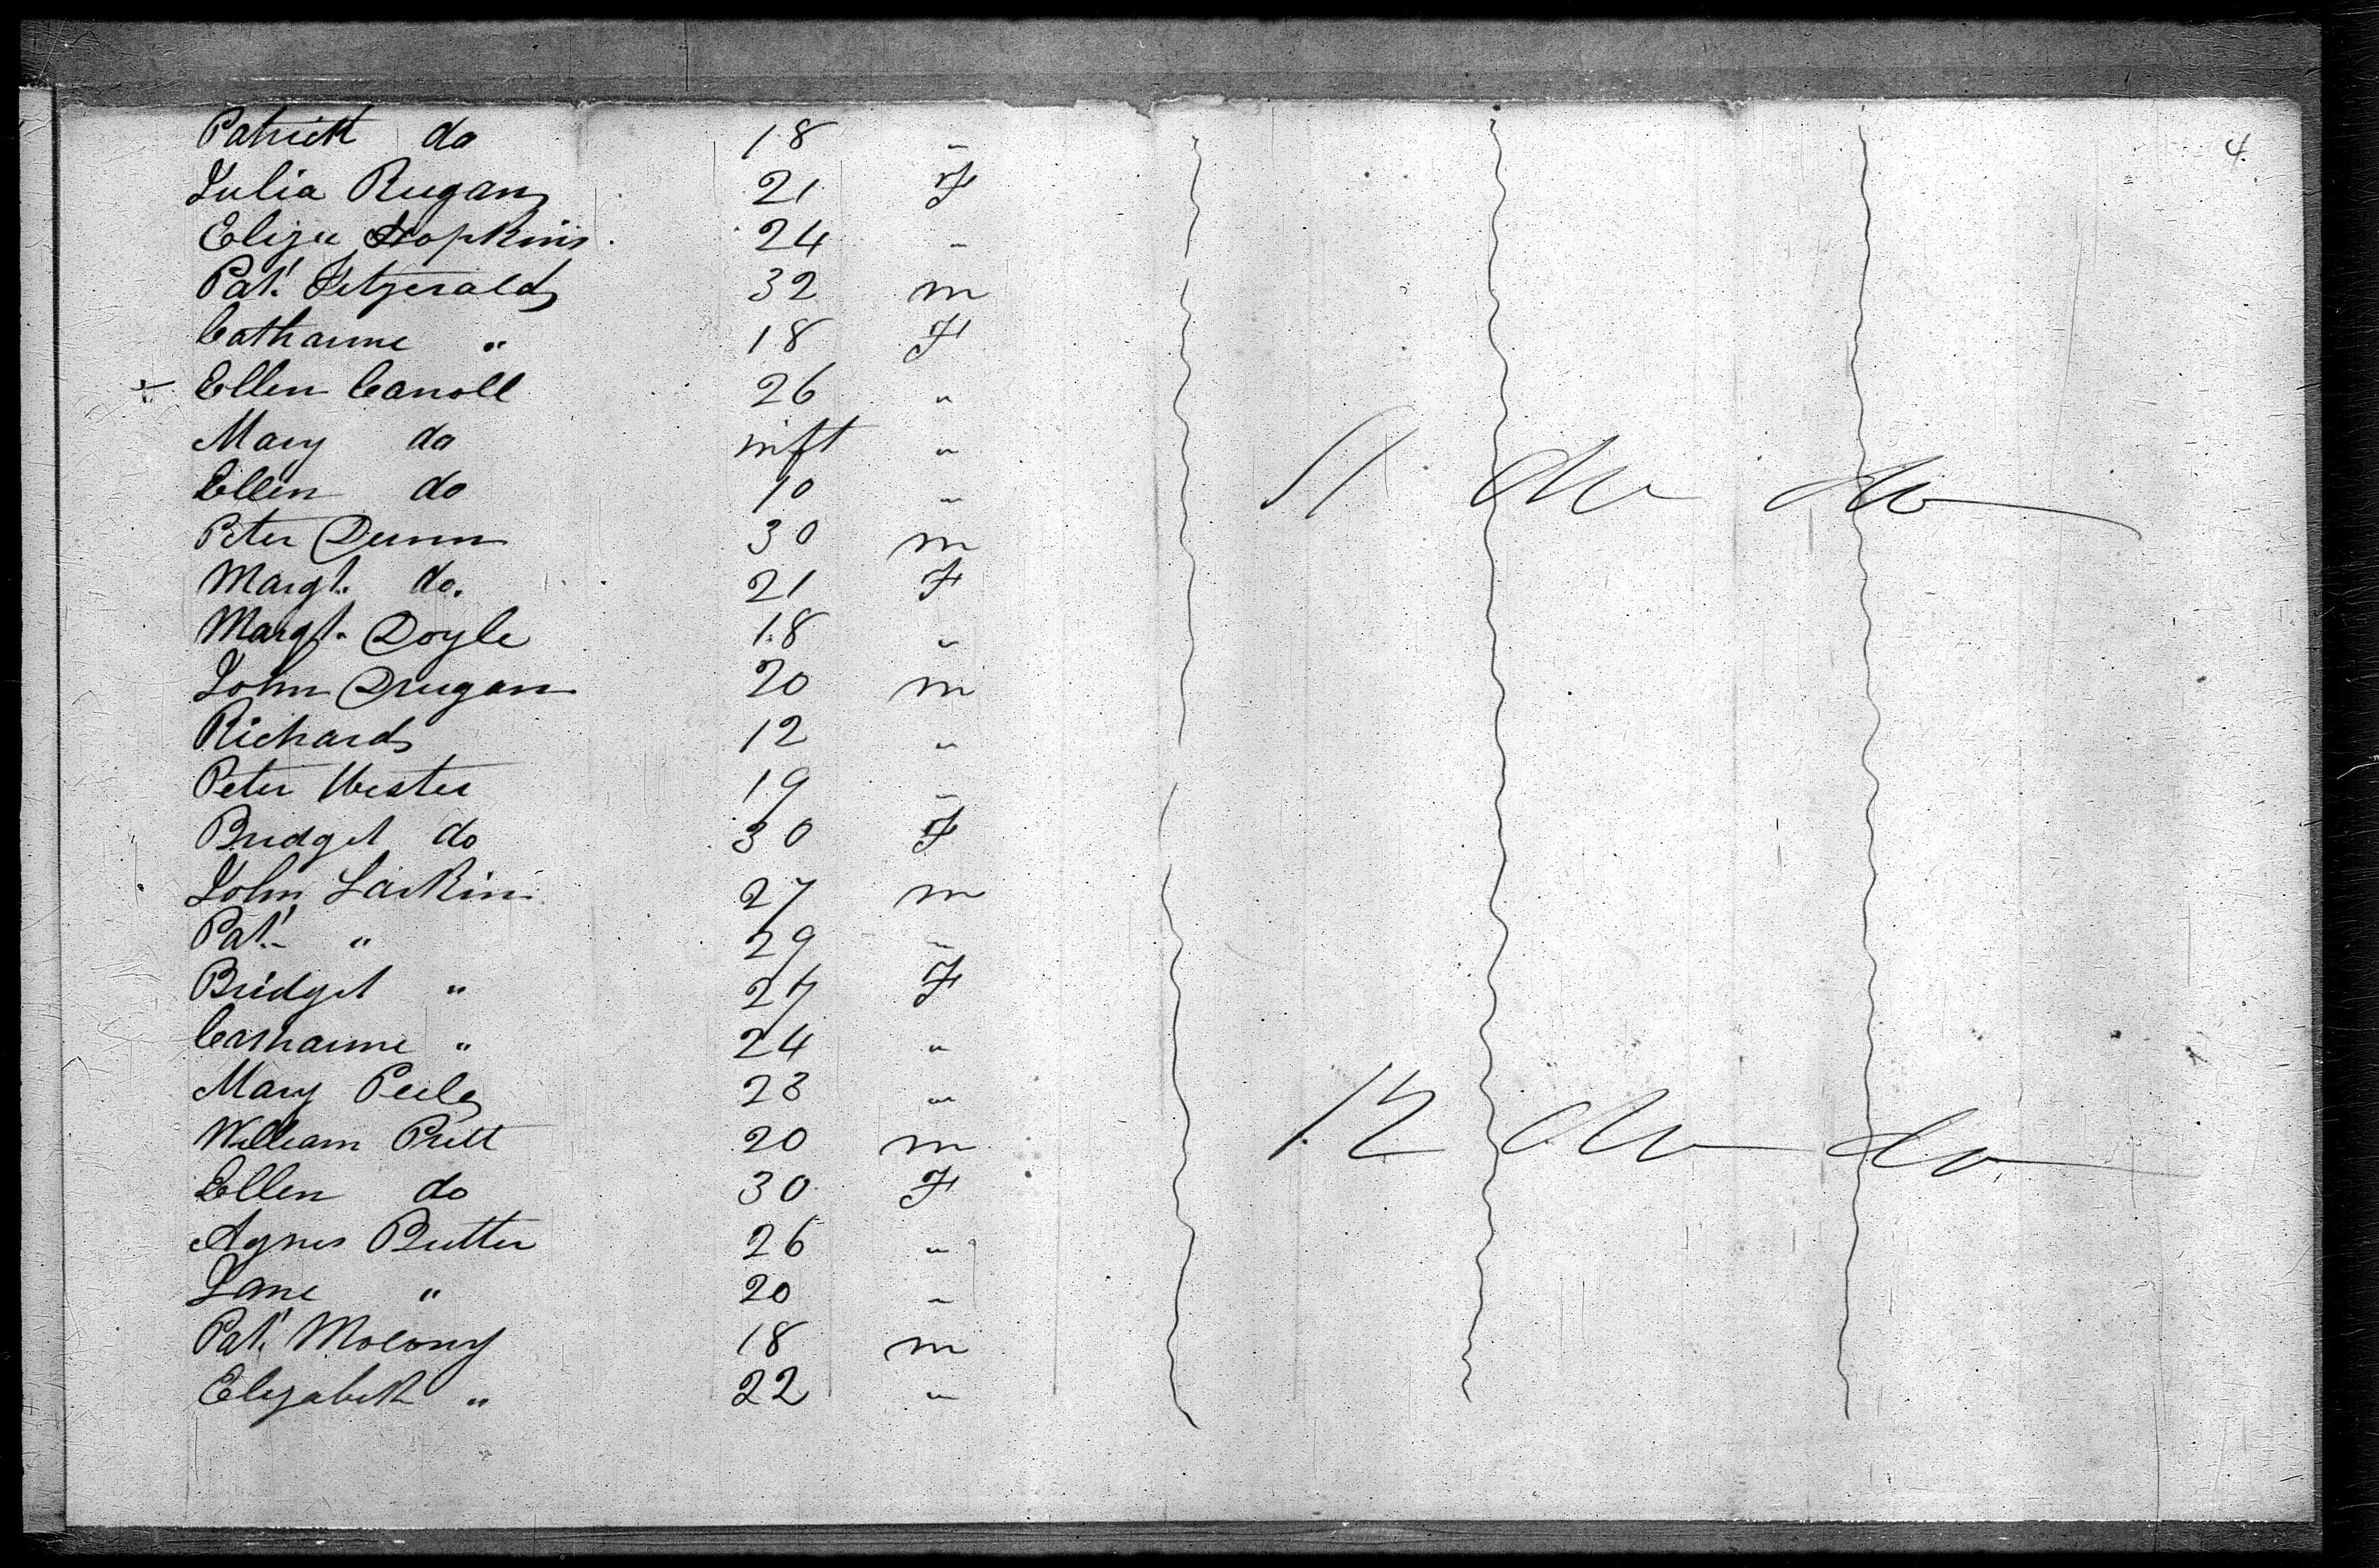 4.
Patrick do 18 "
Julia Rugan 21 F
Eliza Hopkins. 24 "
Pat. Fitzgerald 32 m
Catharine " 18 F
x Ellen Carroll 26 "
Mary do inft "
Ellen do 10 "
11 do do
Peter Dunn 30 m
Margt. do. 21 F
Margt. Doyle 18 "
John Drugan 20 m
Richard 12 "
Peter 19 "
Bridget do 30 F
John Larkin 27 m
Pat. " 29 "
Bridget " 27 F
Catharine " 24 "
Mary 23 "
12 do do
William Pritt 20 m
Ellen do 30 F
Agnes Butter 26 "
Jane " 20 "
Pat. Molony 18 m
Elizabeth " 22 "